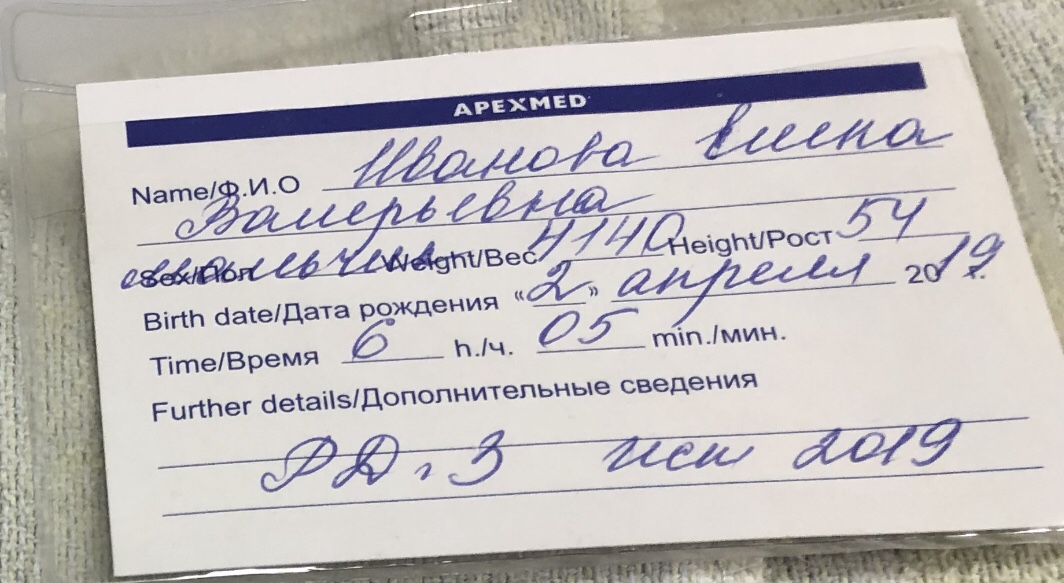 APEXMED
Name/Ф.И.О Иванова Елена
Валерьевна
Sex/Пол мальчик Weight/Вес 4140 Height/Рост 54
Birth date/Дата рождения «2» апреля 2019 г.
Time/Время 6 h./ч. 05 min./мин.
Further details/Дополнительные сведения
РД 3 ист 2019